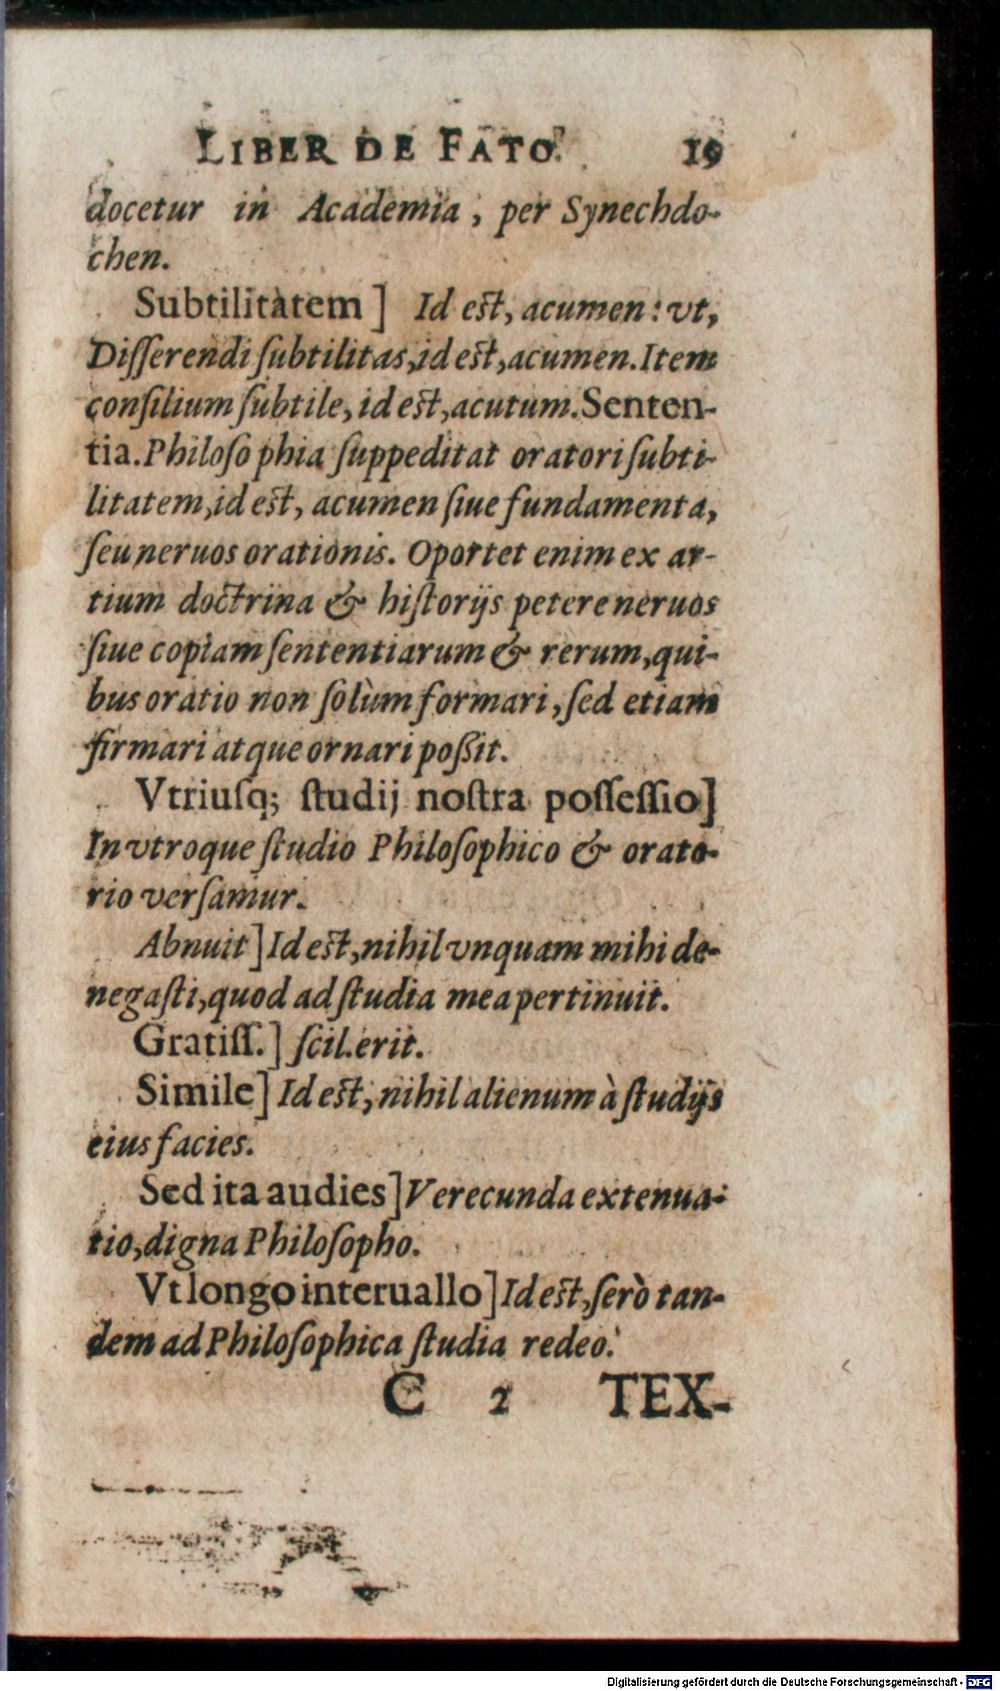 LIBER DE FATO. 19
docetur in Academia, per Synechdo-
chen.
Subtilitatem] Id est, acumen: vt,
Disſerendi ſubtilitas, id est, acumen. Item
conſilium ſubtile, id est, acutum. Senten-
tia. Philoſophia ſuppeditat oratori ſubti-
litatem, id est, acumen ſiue fundamenta,
ſeu neruos orationis. Oportet enim ex ar-
tium doctrina & hiſtorijs petere neruos
ſiue copiam ſententiarum & rerum, qui-
bus oratio non ſolùm formari, ſed etiam
firmari atque ornari poßit.
Vtriuſq; ſtudij noſtra poſſeſſio]
In vtroque ſtudio Philoſophico & orato-
rio verſamur.
Abnuit] Id est, nihil vnquam mihi de-
negaſti, quod ad ſtudia mea pertinuit.
Gratiſſ.] ſcil. erit.
Simile] Id est, nihil alienum à ſtudijs
eius facies.
Sed ita audies] Verecunda extenua-
tio, digna Philoſopho.
Vt longo interuallo] Id est, ſerò tan-
dem ad Philoſophica ſtudia redeo.
C 2 TEX-
Digitalisierung gefördert durch die Deutsche Forschungsgemeinschaft - DFG